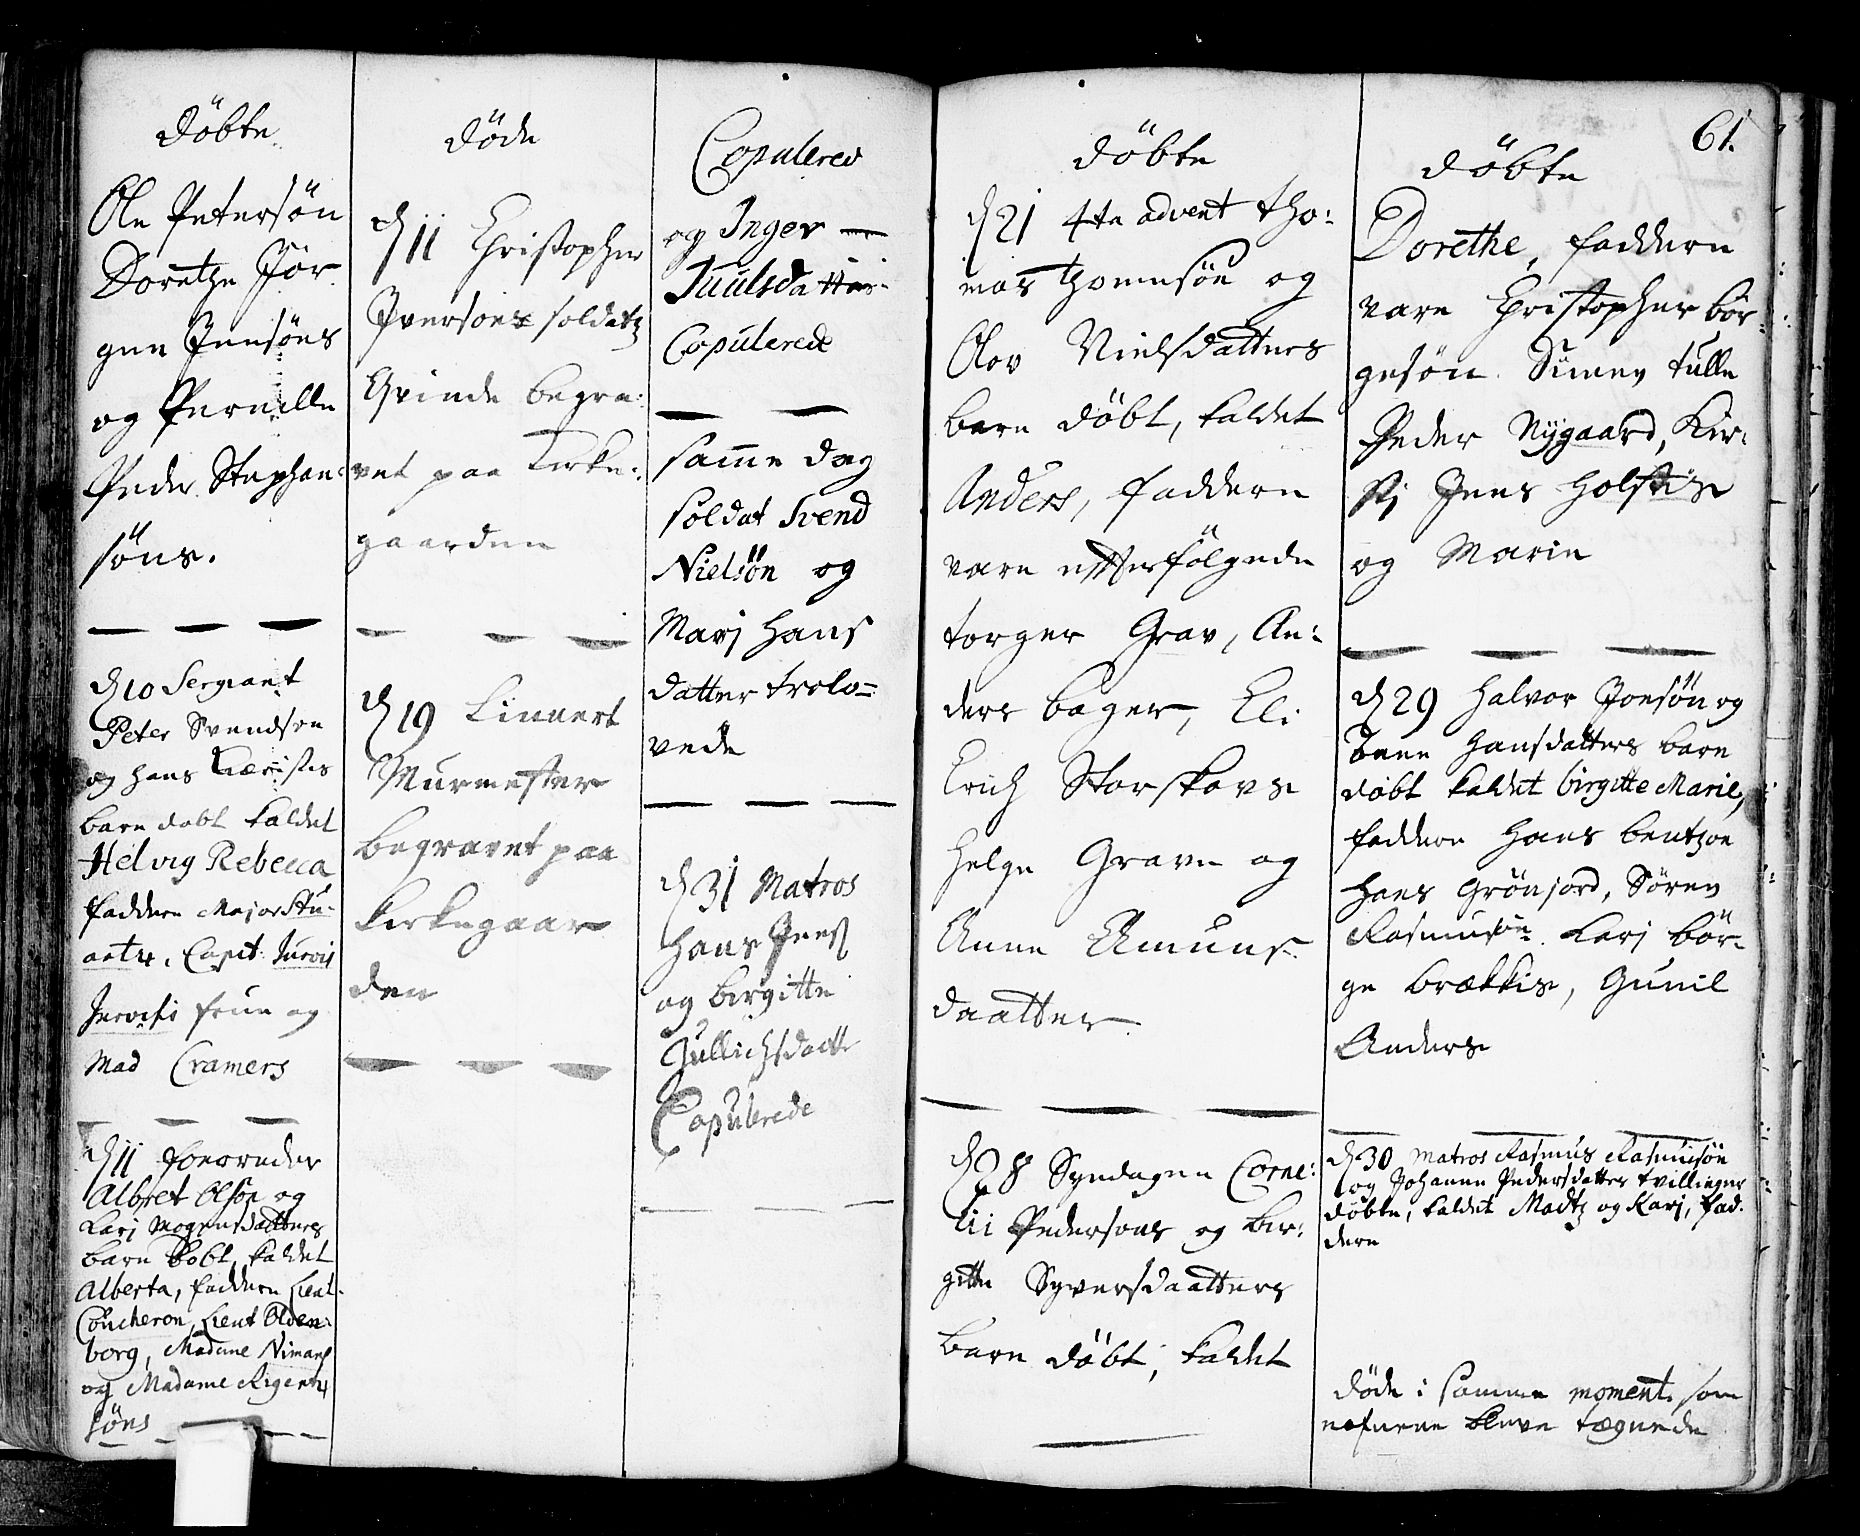 Döbte
Ole Petersön
Dorethe Jör
gen Jensöns
og Pernille
Peder Stephan:
söns.
d 10 Sergiant
Peter Svendsøn
og hans Kieristes
barn døbt kaldet
Helvig Rebecca
faddere Major Stu-
arts, Capit: Juuvis
frue og
Mad Cramers
d 11
Albret Olsøn og
Karj Mogensdatters
barn døbt, kaldet
Alberta, faddere Lieut.
Coucheron, Lieut Olden-
borg, Madame Nimans
og Madame
söns
döde
d 11 Christopher
Iversøns soldatz
Qvinde begra:
vet paa Kirke:
gaarden
d 19 Linnert
Murmester
begravet paa
Kirkegaar
den
Copulered
og Inger
Juulsdatter
Copulerede
samme dag
soldat Svend
Nielsön og
Marj Hans
datter trolo=
vede
d 31 Matros
Hans Jens
og Birgitte
Gullichsdatt
Copulerede
döbte
d 21 4te advent Tho:
mas Thomesön og
Olov Nielsdatters
barn döbt, kaldet
Anders, faddere
vare efterfölgende
Torger Grav, An:
ders bager, Eli
Erich Storskovs
Helge Grave og
Anne Amuns
daatter
d 28 Syndagen Corne:
lii Pedersøns og Bir:
gitte Syversdaatters
barn döbt, kaldet
61.
döbte
Dorethe, faddere
vare Christopher bör:
gesön. Simen Tulle
Peder Nygaard, Kir:
stj Jens Holstis
og Marie
d 29 Halvor Joensön og
Anne Hansdatters barn
döbt kaldet birgitte Marie,
faddere Hans bentzøn
Hans Grönjord, Sören
Rasmusön. Karj bör-
ge brækkis, Gunil
Anders
d 30 Matros Rasmus Rasmusön
og Johanne Pedersdatter tvillinger
döbte, kaldet Madtz og Karj, fad.
dere
döde i samme moment som
nafnene bleve tægnede